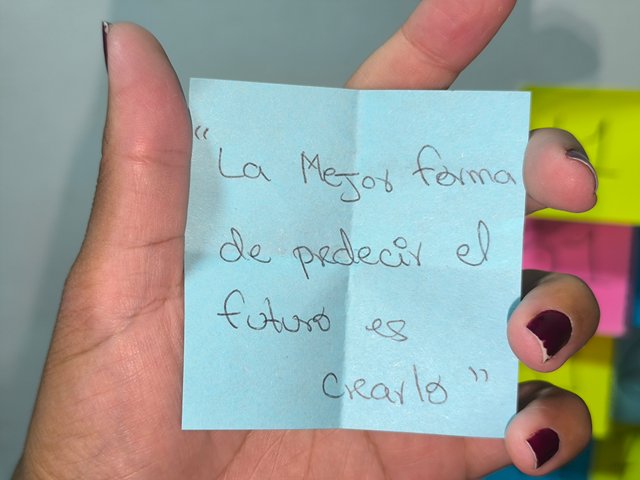 "La Mejor forma
de predecir el
futuro es
crearlo"